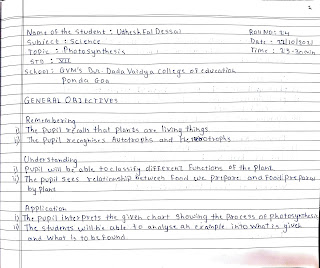 2
Name of the Student : Udhesh Fal Dessai Roll No: 24
Subject : Science Date : 22/10/2021
Topic : Photosynthesis Time : 25-30min
STD : VII
School : GVM's Dr. Dada Vaidya College of education
Ponda Goa
GENERAL OBJECTIVES
Remembering
i) The pupil recalls that plants are living things
ii) The pupil recognises Autotrophs and Heterotrophs
Understanding
i) Pupil will be able to classify different functions of the plant
ii) The pupil sees relationship between food we prepare and food prepared
by plant
Application
i) The pupil interprets the given chart showing the process of photosynthesis
ii) The students will be able to analyse an example into what is given
and what is to be found